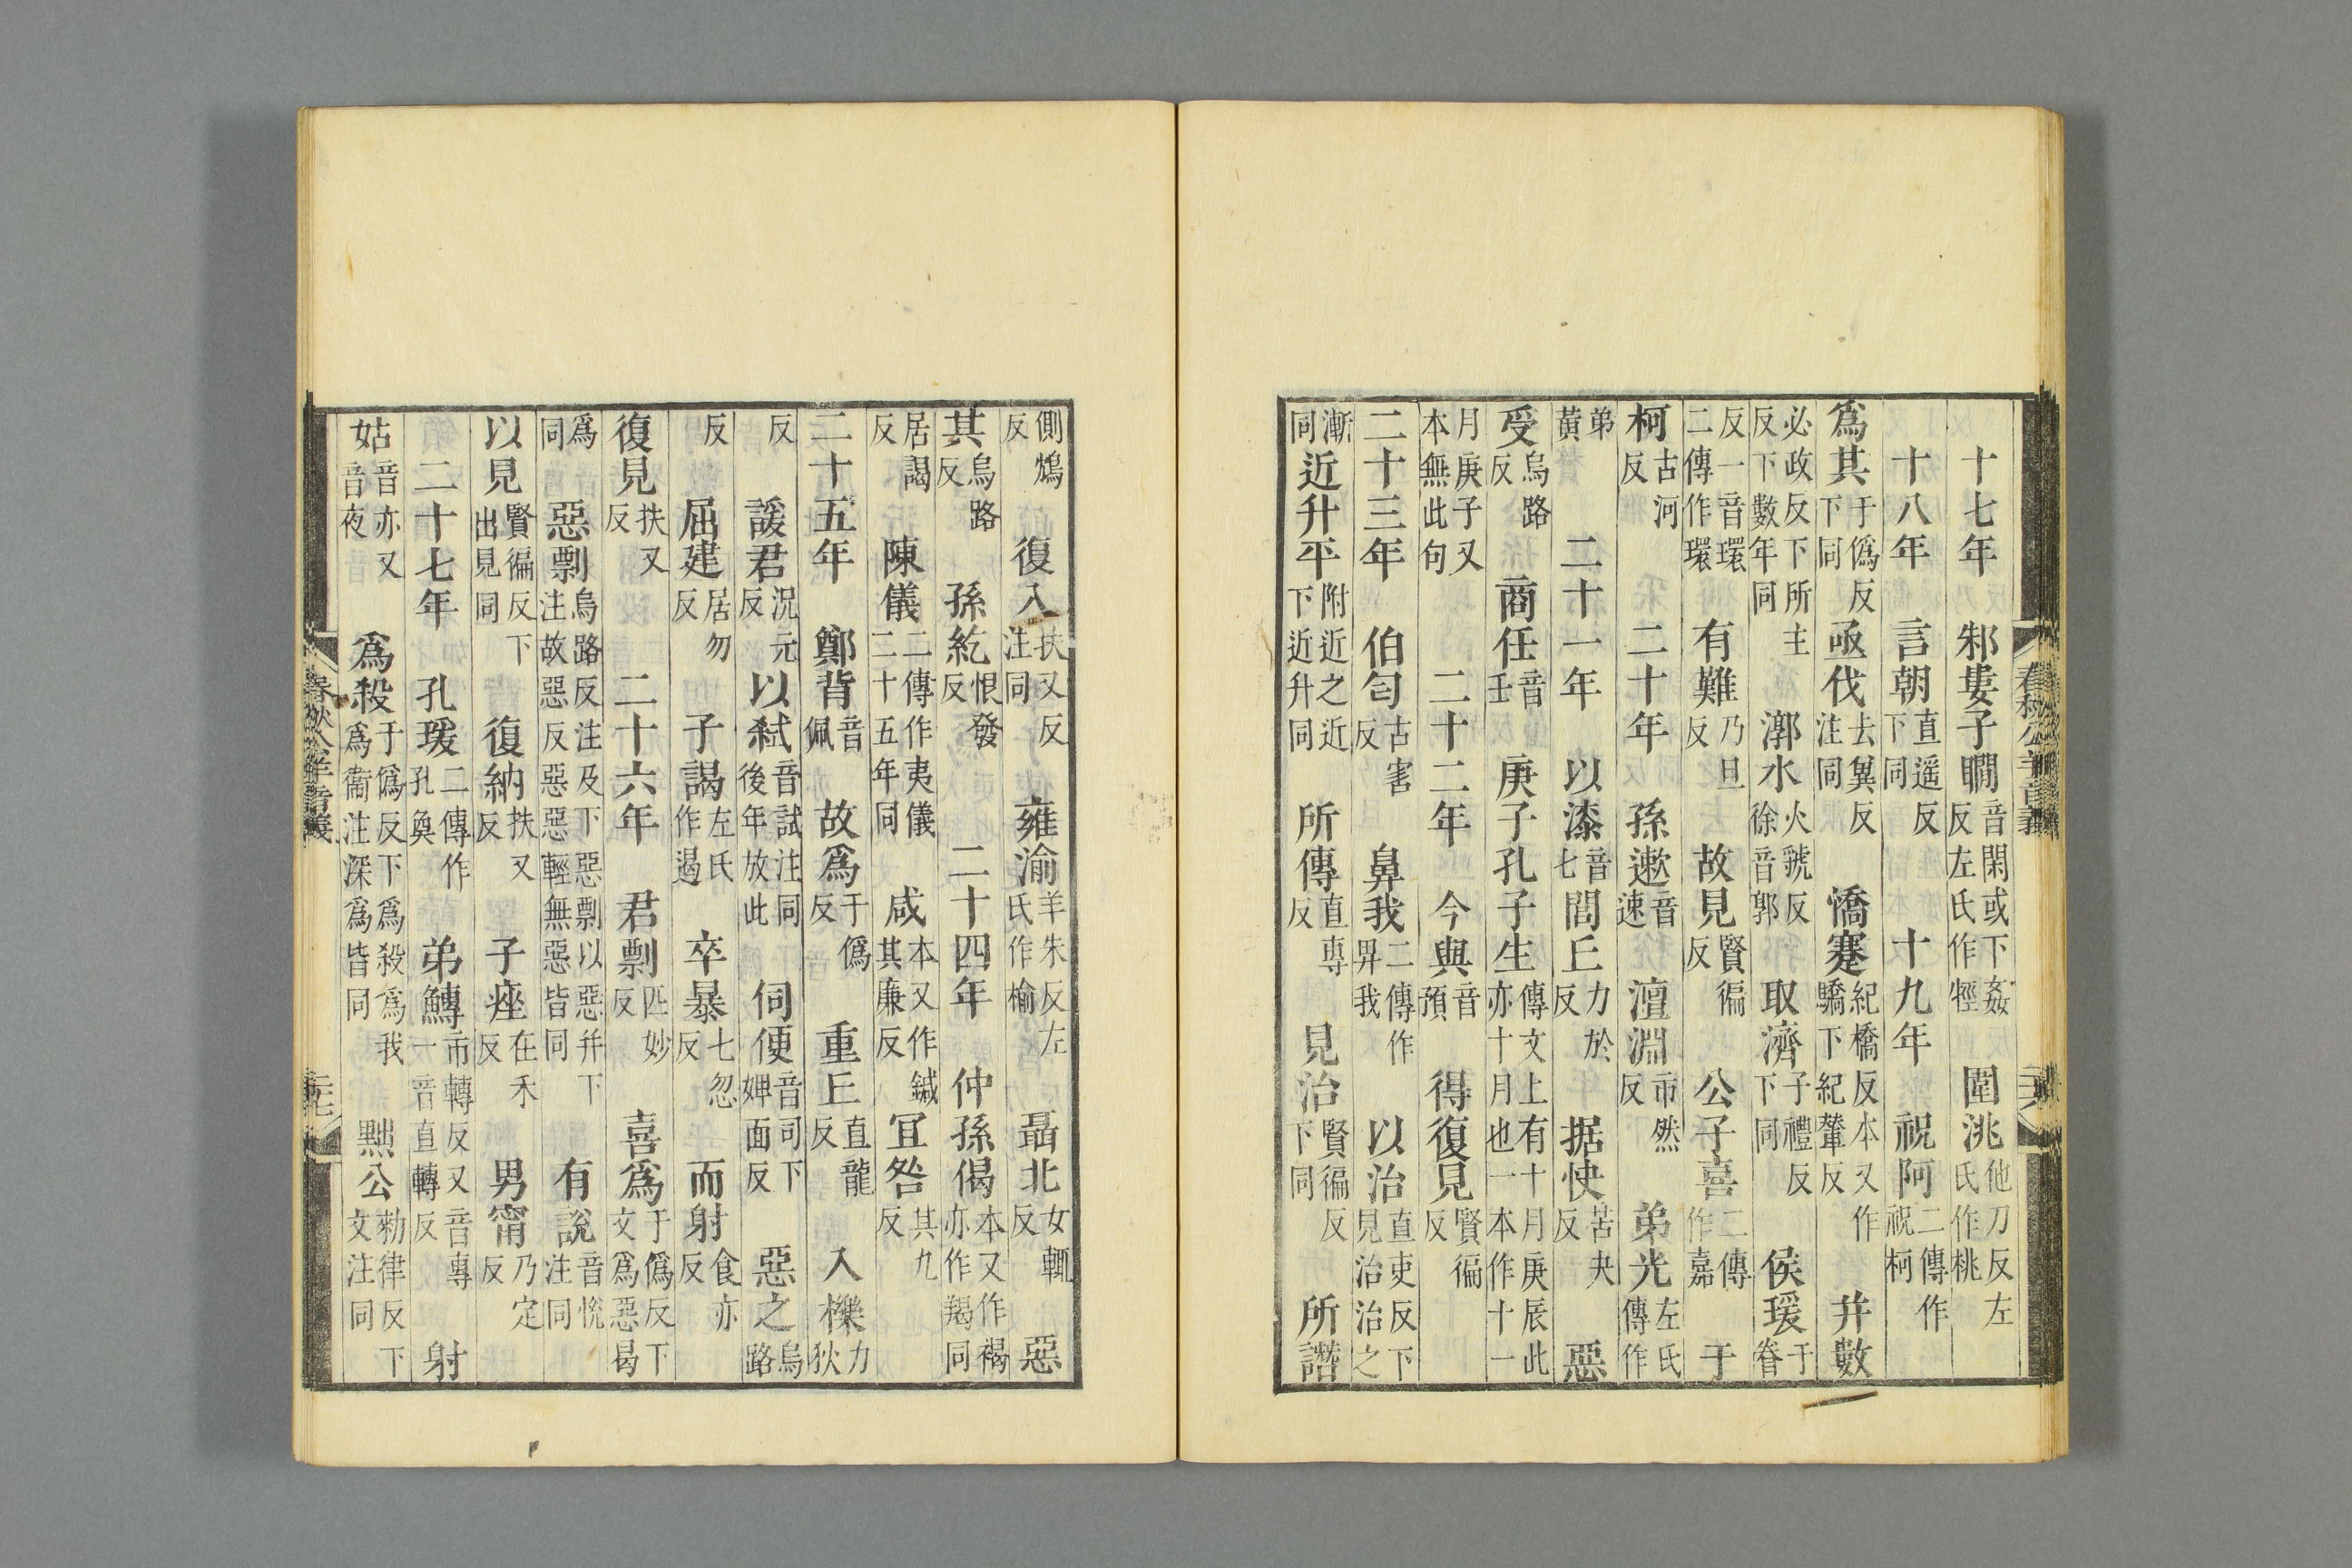 春秋公羊音義
十七年 邾婁子瞷音閑或下姦反左氏作牼 圍洮他刀反左氏作桃
十八年 言朝直遥反下同 十九年 祝阿二傳作祝柯
爲其于僞反下同 亟伐去冀反注同 憍蹇紀橋反本又作驕下紀輦反 并數
必政反下所主反下數年同 漷水火虢反徐音郭 取濟子禮反下同 侯瑗于眷
反一音環二傳作環 有難乃旦反 故見賢徧反 公子喜二傳作嘉 于
柯古河反 二十年 孫遬音速 澶淵市然反 弟光左氏傳作
弟黄 二十一年 以漆音七 閭丘力於反 据快苦夬反 惡
受烏路反 商任音壬 庚子孔子生傳文上有十月庚辰此亦十月也一本作十一
月庚子又本無此句 二十二年 今與音預 得復見賢徧反
二十三年 伯匄古害反 鼻我二傳作畀我 以治直吏反下見治治之
漸同 近升平附近之近下近升同 所傳直專反 見治賢徧反下同 所譖
側鴆反 復入扶又反注同 雍渝羊朱反左氏作榆 聶北女輒反 惡
其烏路反 孫紇恨發反 二十四年 仲孫偈本又作褐亦作羯同
居謁反 陳儀二傳作夷儀二十五年同 咸本又作鍼其廉反 宜咎其九反
二十五年 鄭背音佩 故爲于僞反 重丘直龍反 入櫟力狄
反 諼君況元反 以弒音試注同後年放此 伺便音司下婢面反 惡之烏路
反 屈建居勿反 子謁左氏作遏 卒暴七忽反 而射食亦反
復見扶又反 二十六年 君剽匹妙反 喜爲于僞反下文爲惡曷
爲同 惡剽烏路反注及下惡剽以惡并下注故惡反惡惡輕無惡皆同 有說音悅注同
以見賢徧反下出見同 復納扶又反 子痤在禾反 男甯乃定反
二十七年 孔瑗二傳作孔奐 弟鱄市轉反又音專一音直轉反 射
姑音亦又音夜 爲殺于僞反下爲殺爲我爲衞注深爲皆同 黜公勑律反下文注同
春秋公羊音義